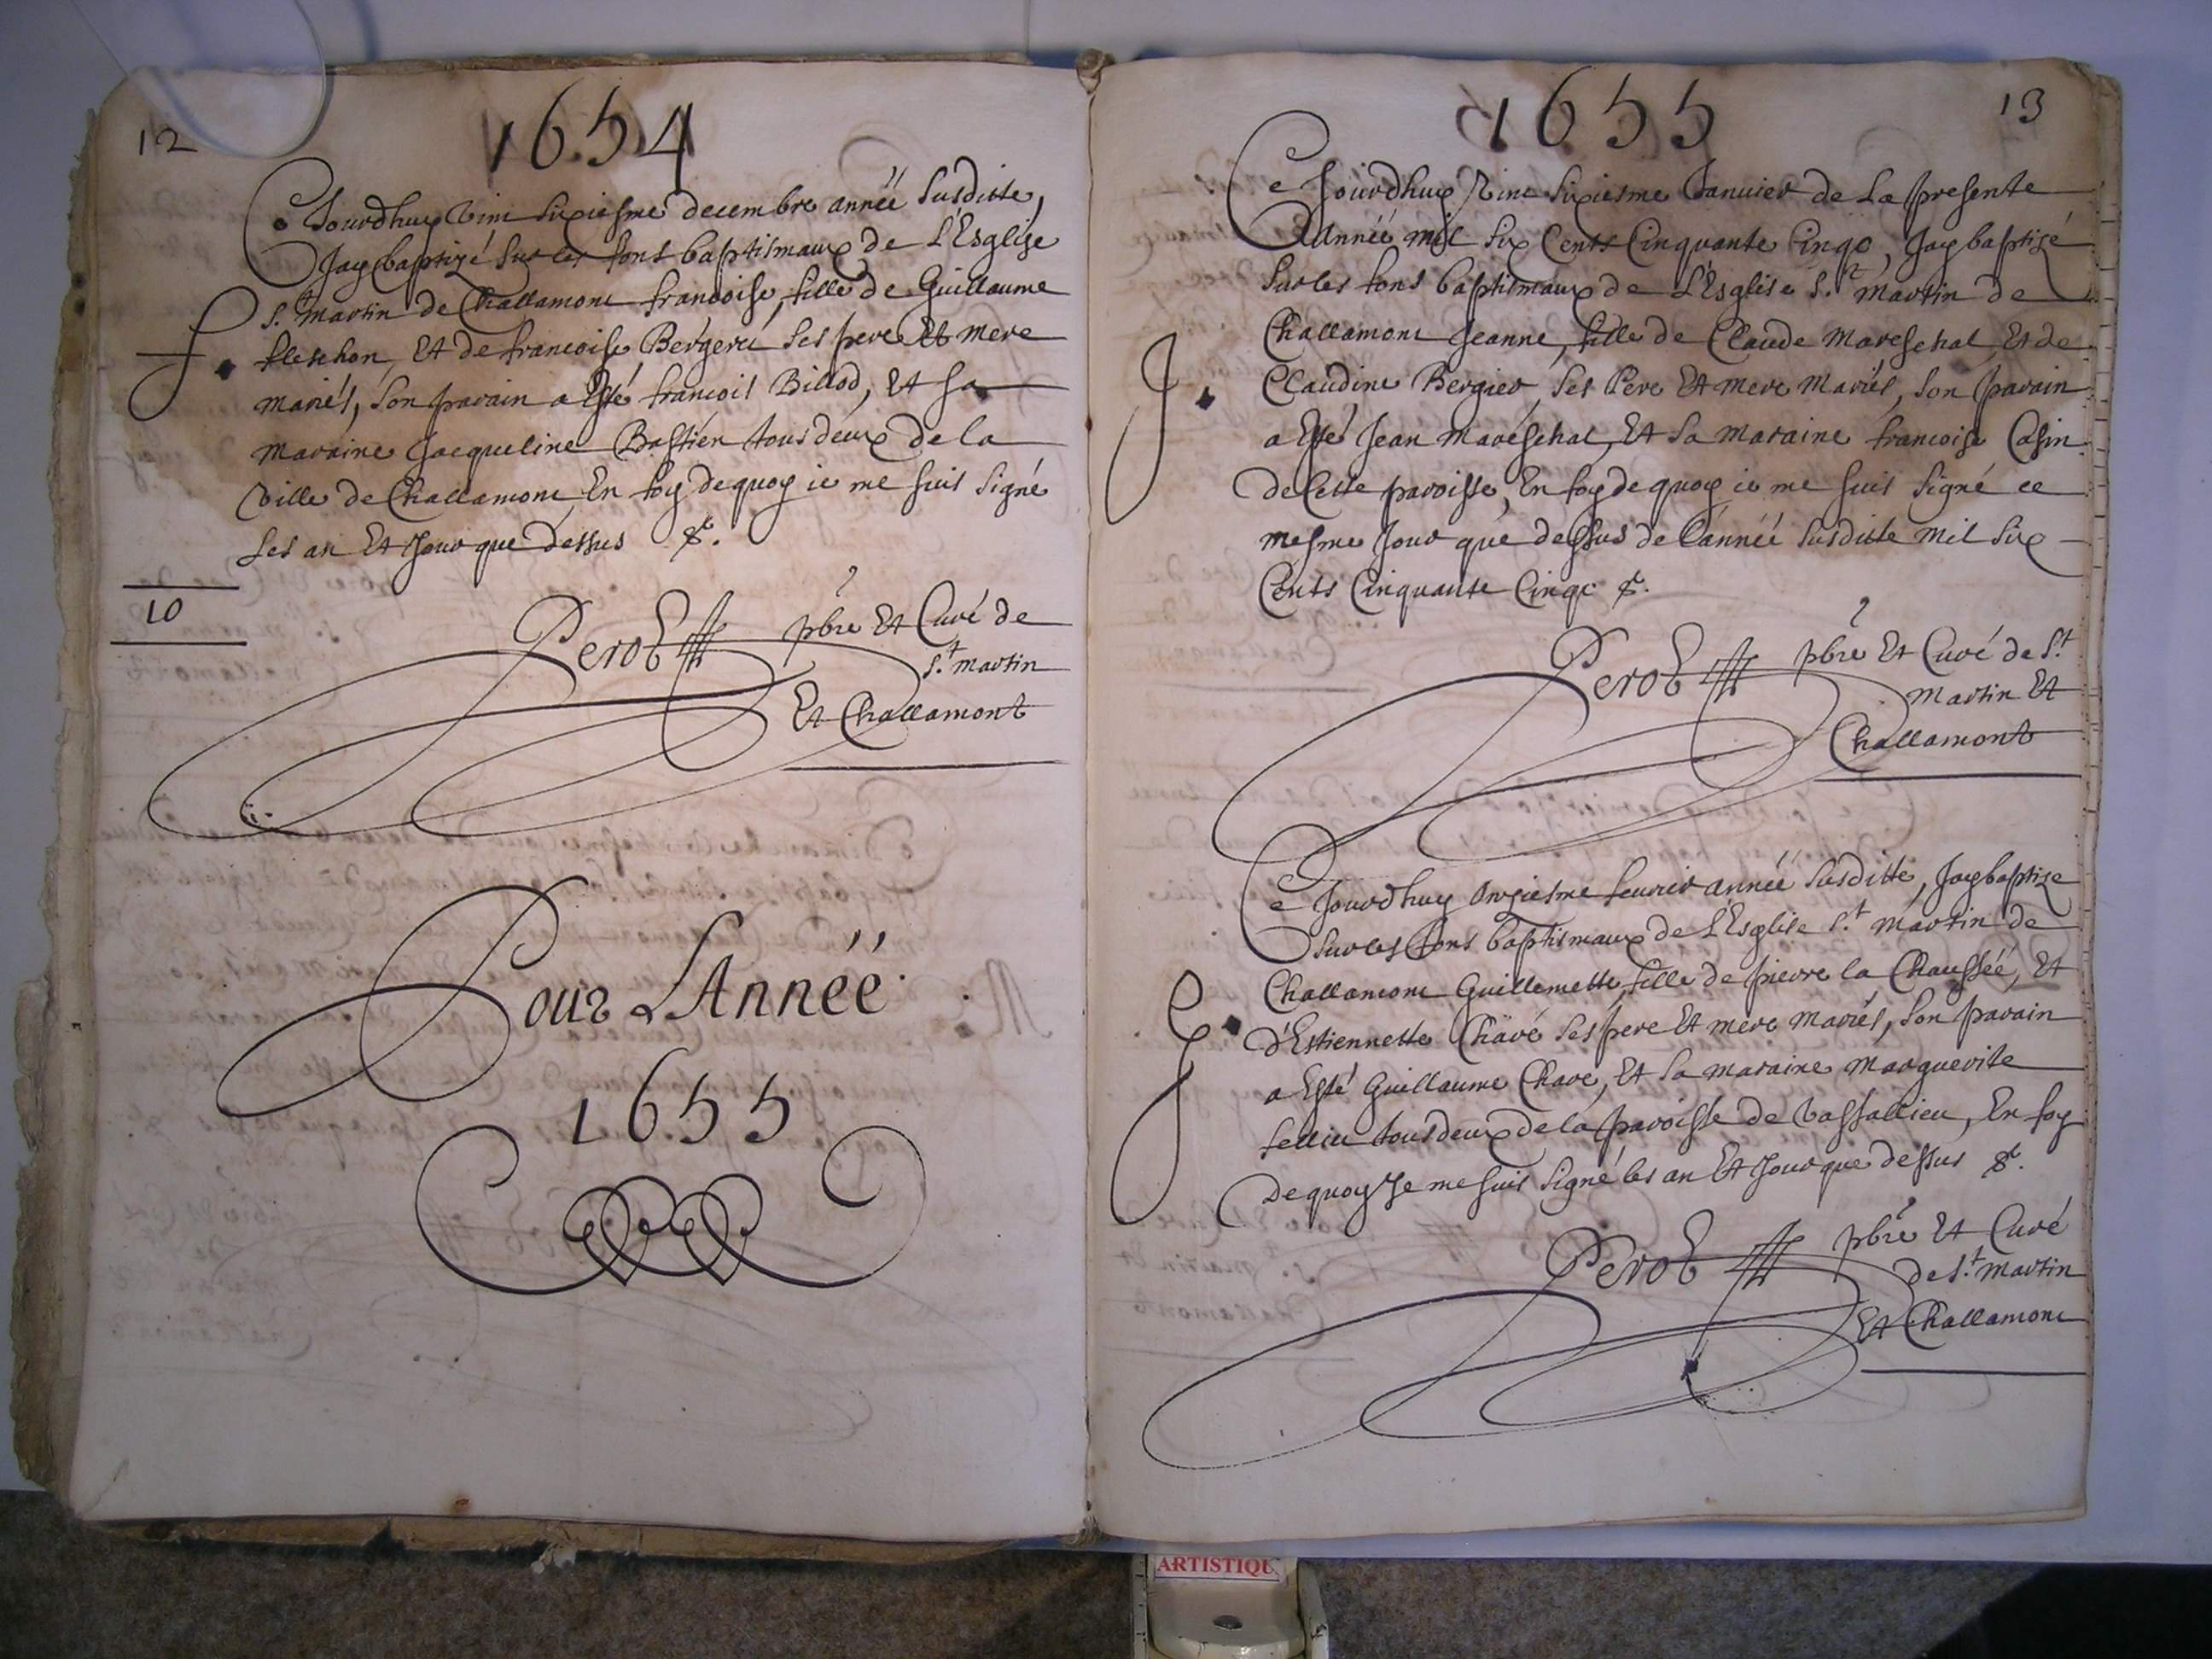 12
1654
Ce Jourdhuy Vint sixiesme decembre année susditte,
Jay baptizé sur les fons baptismaux de L'Esglise
S.t martin de Challamont francoise, fille de Guillaume
fleschon, Et de francoise Bergeret ses pere Et mere
mariés, son parain a Esté francois Billod, Et sa
maraine Jacqueline Bastien tous deux de la
Ville de Challamont En foy de quoy ie me suis signé
Les an Et Jour que dessus &.
F.
10
Perot pbre Et Curé de
S.t martin
Et Challamont
Pour L'Année
1655
1655
13
Ce Jourdhuy Vint sixiesme Januier de La presente
Année mil six Cents Cinquante Cinqc, Jay baptizé
sur les fons baptismaux de L'Esglise S.t martin de
Challamont Jeanne, fille de Claude mareschal Et de
Claudine Bergier, ses Pere Et mere mariés, son parain
a Esté Jean mareschal, Et sa maraine francoise Casin
de Cette paroisse, En foy de quoy ie me suis signé ce
mesme Jour que dessus de l'année susditte mil six
Cents Cinquante Cinqc &.
J.
Perot pbre Et Curé de S.t
martin Et
Challamont
Ce Jourdhuy Onziesme feurier année susditte, Jay baptize
sur les fons baptismaux de L'Esglise S.t martin de
Challamont Guillemette, fille de pierre la Chaussée, Et
d'Estiennette Chavé ses pere Et mere mariés, son parain
a Esté Guillaume Chave, Et sa maraine marguerite
tous deux de la paroisse de Vassallieu, En foy
de quoy Je me suis signé les an Et Jour que dessus &.
G.
Perot pbre Et Curé
de S.t martin
Et Challamont
ARTISTIQU